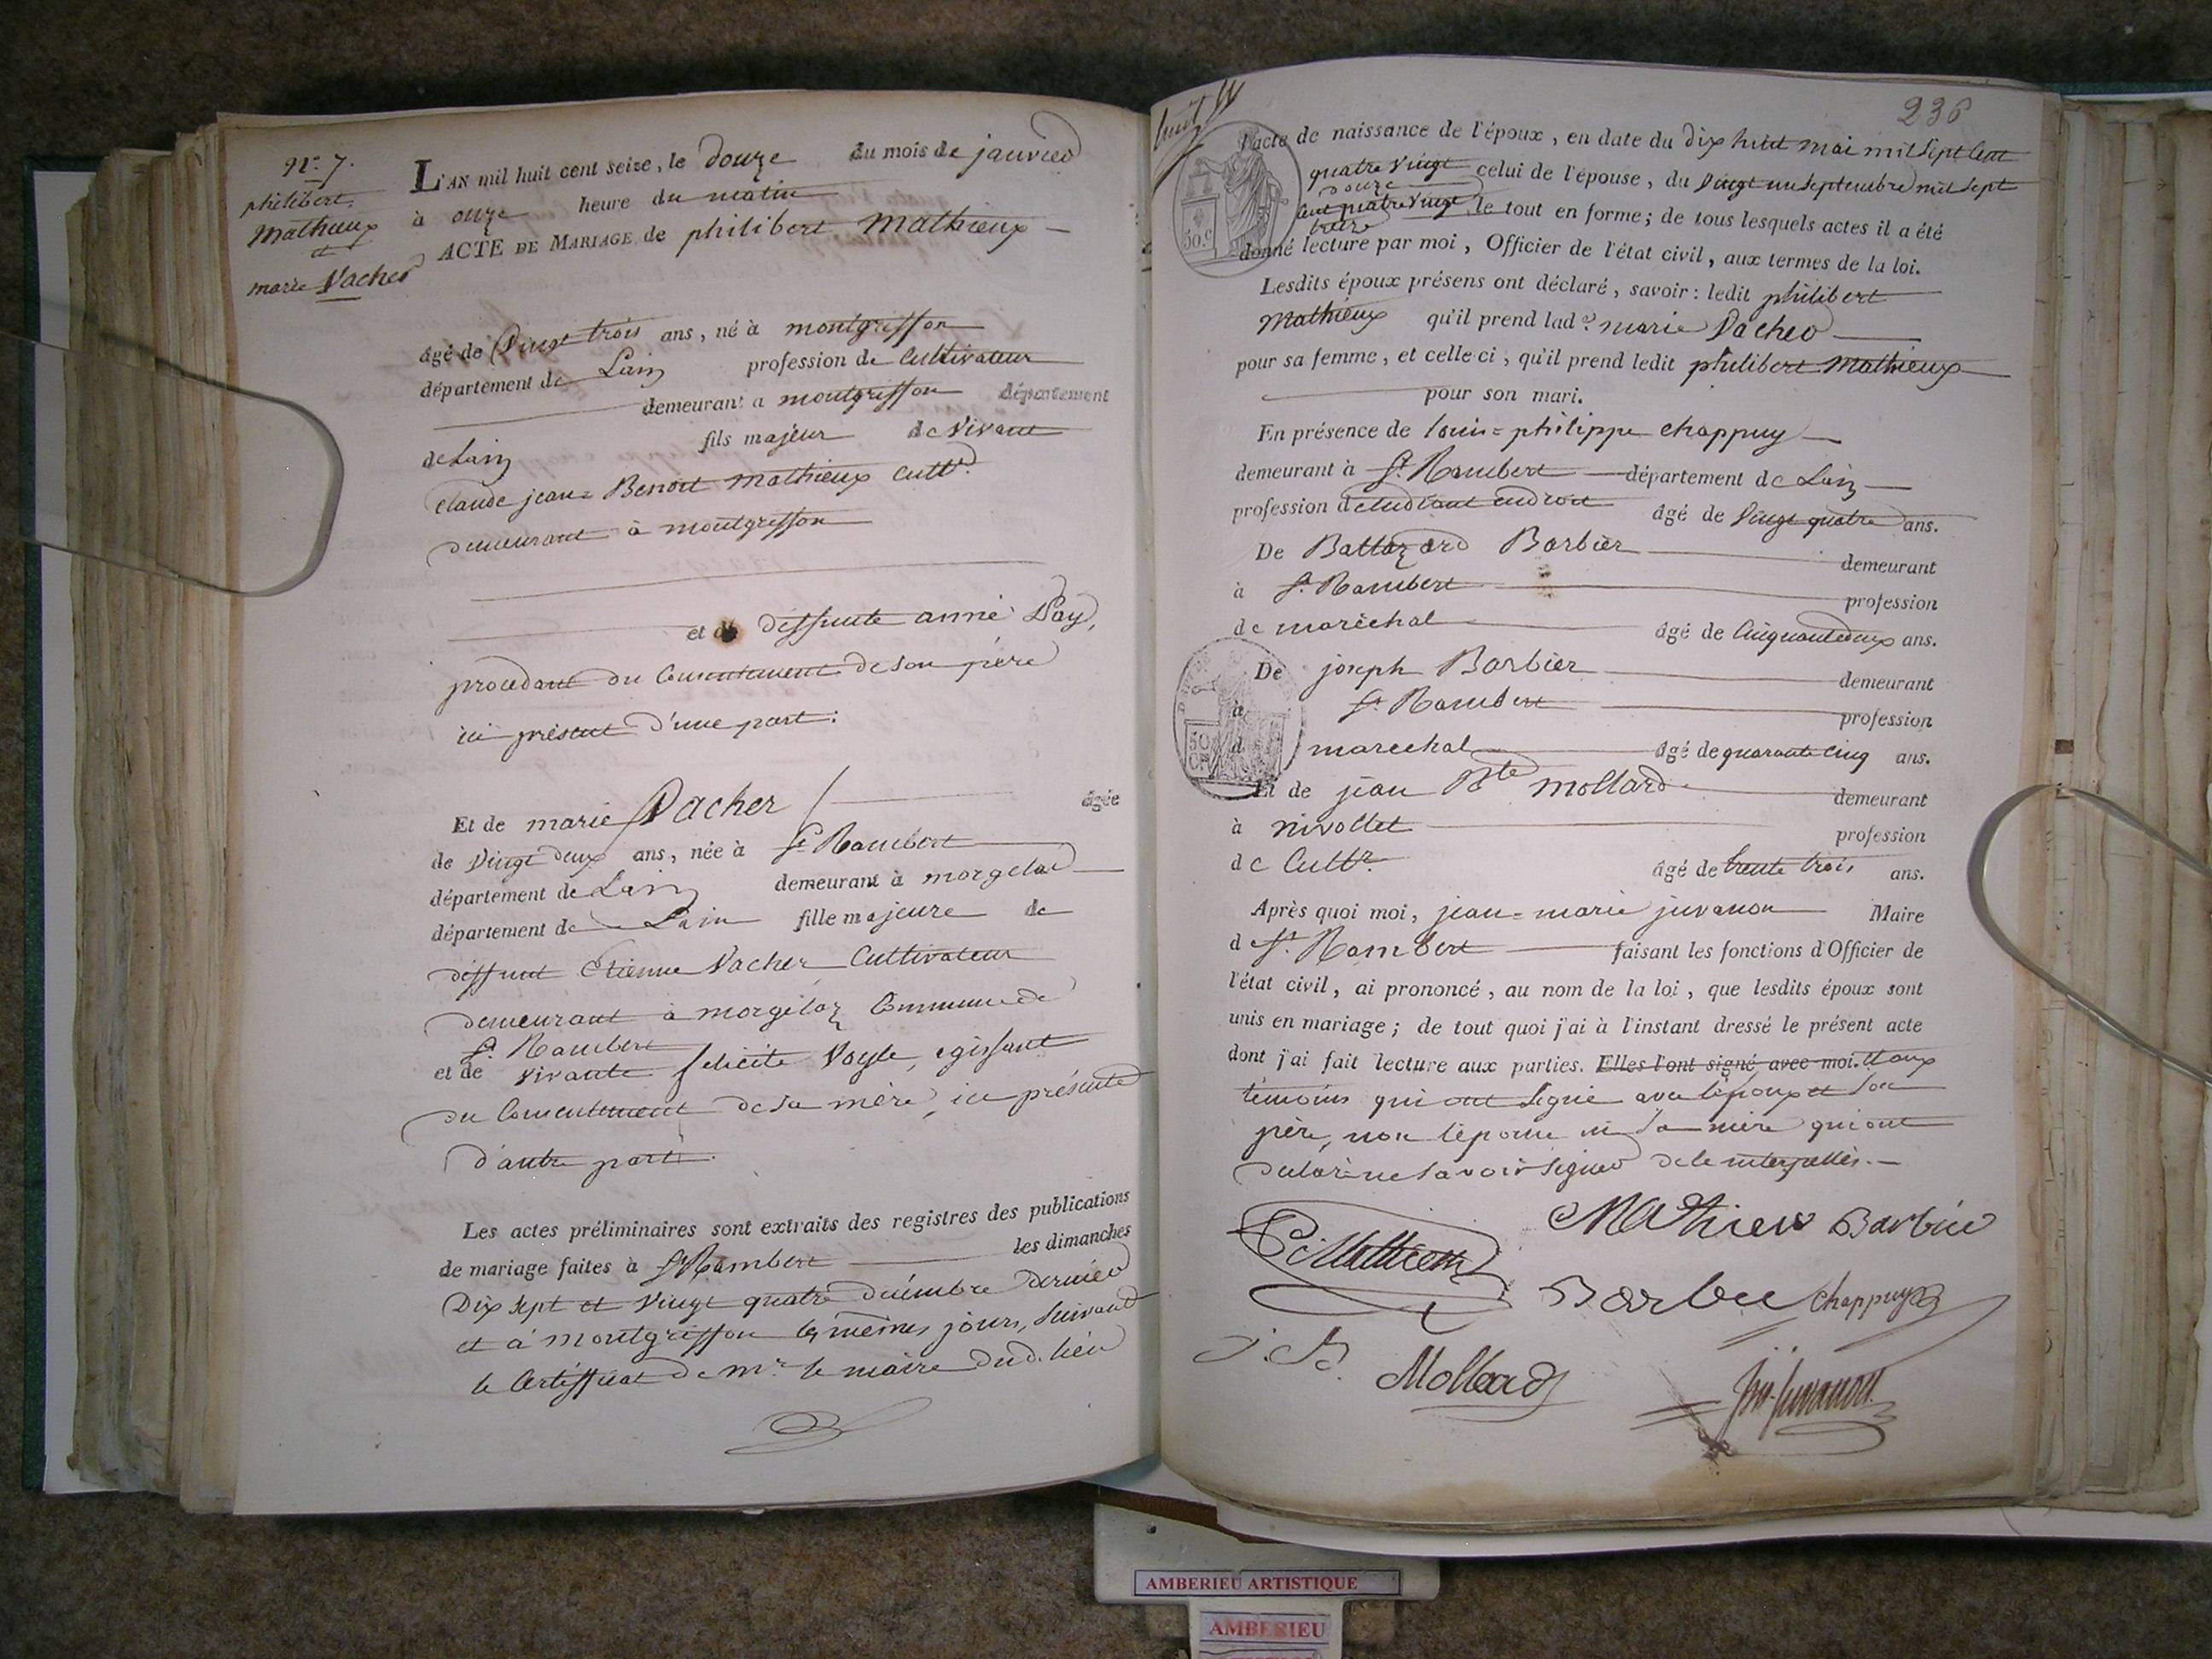 N.° 7.
philibert
Mathieux
et
marie Vacher
L'AN mil huit cent seize, le douze du mois de janvier
à onze heure du matin
ACTE DE MARIAGE de philibert Mathieux
âgé de Vingt trois ans, né à montgriffon
département de Lain profession de Cultivateur
demeurant a montgriffon département
de Lain fils majeur de Vivant
Claude jean = Benoit Mathieux Cultr.
demeurant à montgriffon
et de deffunte anne
procedant du Consentement de son père
ici présent d'une part.
Et de marie Vacher âgée
de Vingt deux ans, née à St Rambert
département de Lain demeurant à morgelaz
département de Lain fille majeure de
deffunt Etienne Vacher Cultivateur
demeurant à morgelaz Commune de
St. Rambert
et de vivante felicité Voyle, agissant
du Consentement de sa mère, ici présente
d'autre part.
Les actes préliminaires sont extraits des registres des publications
de mariage faites à St Rambert les dimanches
Dix sept et Vingt quatre décembre dernier
et à montgriffon les mêmes jours, suivant
le Certifficat de mr. le maire dud. lieu
236
l'acte de naissance de l'époux, en date du dix huit mai mil sept Cent
quatre vingt celui de l'épouse, du Vingt un Septembre mil sept
douze
Cent quatre Vingt le tout en forme; de tous lesquels actes il a été
treize
50.c
donné lecture par moi, Officier de l'état civil, aux termes de la loi.
Lesdits époux présens ont déclaré, savoir: ledit philibert
Mathieux qu'il prend lade. marie Vacher
pour sa femme, et celle-ci, qu'il prend ledit philibert Mathieux
pour son mari.
En présence de louis = philippe chappuy
demeurant à St. Rambert département de Lain
profession d'etudiant en droit âgé de Vingt quatre ans.
De Baltazard Barbier demeurant
à St. Rambert profession
de maréchal âgé de Cinquante deux ans.
De joseph Barbier demeurant
à St. Rambert profession
50
d marechal âgé de quarante cinq ans.
Et de jean Bte mollard demeurant
à nivollet profession
de Cultr. âgé de trente trois ans.
Après quoi moi, jean = marie juvanon Maire
d St. Rambert faisant les fonctions d'Officier de
l'état civil, ai prononcé, au nom de la loi, que lesdits époux sont
unis en mariage; de tout quoi j'ai à l'instant dressé le présent acte
dont j'ai fait lecture aux parties. Elles l'ont signé avec moi. et aux
témoins qui ont signé avec l'époux et son
père, non l'épouse ni sa mère qui ont
declaré ne savoir signer de ce interpellés.
Mathieu Barbier
Mathieu
Barbie Chappuy
J. B.
Mollard
Jm. Juvanon
AMBERIEU ARTISTIQUE
AMBERIEU